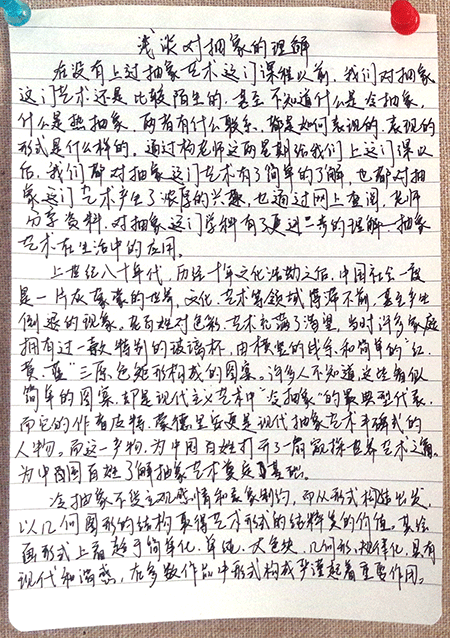 浅谈对抽象的理解
在没有上过抽象艺术这门课程以前,我们对抽象
这门艺术还是比较陌生的,甚至不知道什么是冷抽象,
什么是热抽象,两者有什么联系,都是如何表现的,表现的
形式是什么样的。通过构老师这两星期给我们上这门课以
后,我们都对抽象这门艺术有了简单的了解,也都对抽
象这门艺术产生了浓厚的兴趣,也通过网上查阅,老师
分享资料,对抽象这门学科有了更进一步的理解—抽象
艺术在生活中的应用。
上世纪八十年代,历经十年文化浩劫之后,中国社会一般
是一片灰蒙蒙的世界,文化、艺术等领域停滞不前,甚至产生
倒退的现象。老百姓对色彩、艺术充满了渴望,当时许多家庭
拥有过一款特别的玻璃杯,由横竖的线条和简单的“红、
黄、蓝”三原色矩形构成的图案。许多人不知道这些看似
简单的图案,却是现代主义艺术中“冷抽象”的最典型代表,
而它的作者皮特·蒙德里安更是现代抽象艺术丰碑式的
人物。而这一事物,为中国百姓打开了一扇窥探世界艺术之窗,
为中国百姓了解抽象艺术奠定了基础。
冷抽象不受主观感情和表象制约,而从形式构结出发,
以几何图形的结构取得艺术形式的纯粹美的价值,其绘
画形式上着趋于简单化、单纯、大色块、几何形、规律化,具有
现代和谐感,在多数作品中形式构成严谨起着重要作用。